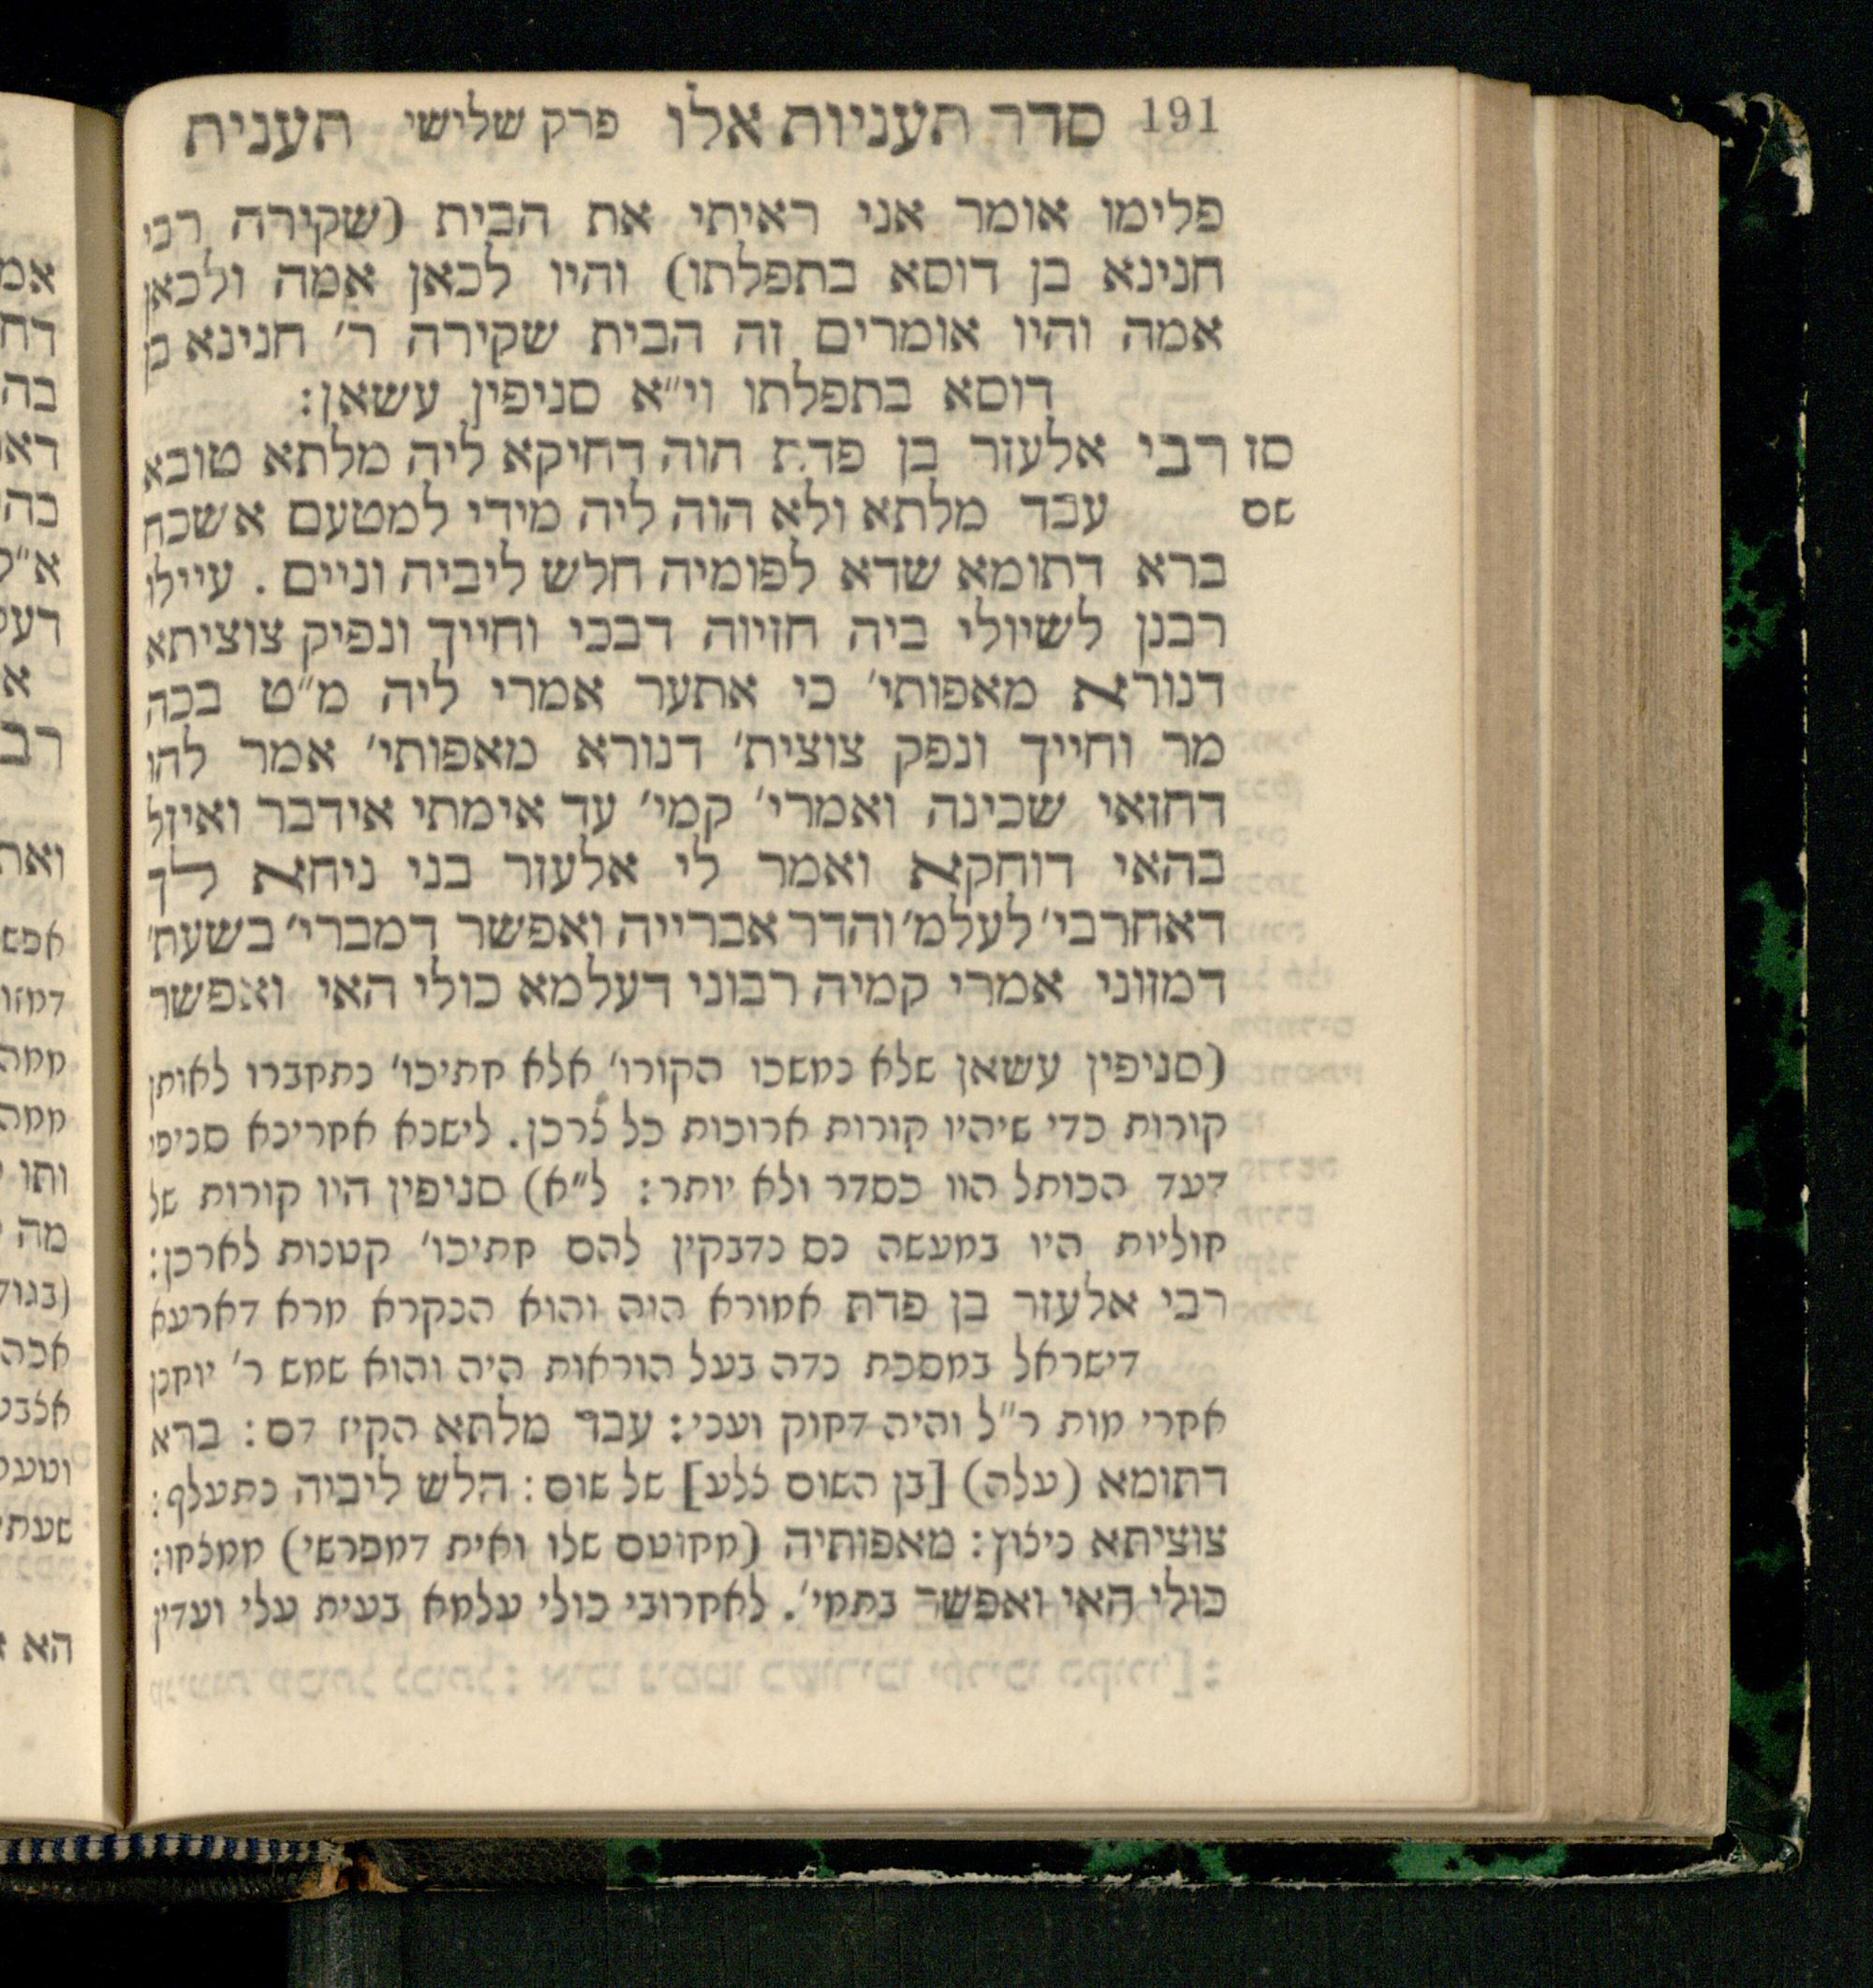 191 סדר תעניות אלו פרק שלישי תענית
פלימו אומר אני ראיתי את הבית (שקירה רבי
חנינא בן דוסא בתפלתו) והיו לכאן אמה ולכאן
אמה והיו אומרים זה הבית שקירה ר׳ חנינא בן
דוסא בתפלתו וי״א סניפין עשאן:
סז רבי אלעזר בן פדת הוה דחיקא ליה מלתא טובא
שם עבד מלתא ולא הוה ליה מידי למטעם אשכח
ברא דתומא שדא לפומיה חלש ליביה וניים. עיילו
רבנן לשיולי ביה חזיוה דבכי וחייך ונפיק צוציתא
דנורא מאפותי׳ כי אתער אמרי ליה מ״ט בכה
מר וחייך ונפק צוצית׳ דנורא מאפותי׳ אמר להו
דחזאי שכינה ואמרי׳ קמי׳ עד אימתי אידבר ואיזל
בהאי דוחקא ואמר לי אלעזר בני ניחא לך
דאחרבי׳ לעלמ׳ והדר אברייה ואפשר דמברי׳ בשעת׳
דמזוני אמרי קמיה רבוני דעלמא כולי האי ואפשר
(סניפין עשאן שלא נמשכו הקורו׳ אלא חתיכו׳ נתחברו לאותן
קורות כדי שיהיו קורות ארוכות כל צרכן. לישנא אחרינא סניפי
דעד הכותל הוו כסדר ולא יותר: ל״א) סניפין היו קורות של
חוליות היו במעשה נס נדבקין להם חתיכו׳ קטנות לארכן:
רבי אלעזר בן פדת אמורא היה והוא הנקרא מרא דארעא
דישראל במסכת נדה בעל הוראות היה והוא שמש ר׳ יוחנן
אחרי מות ר״ל והיה דחוק ועני: עבד מלתא הקיז דם: ברא
דתומא (עלה) [בן השום צלע] של שום: הלש ליביה נתעלף:
צוציתא ניצוץ: מאפותיה (מחוטם שלו ואית דמפרשי) ממצחו:
כולי האי ואפשר בתמי׳. לאחרובי כולי עלמא בעית עלי ועדין